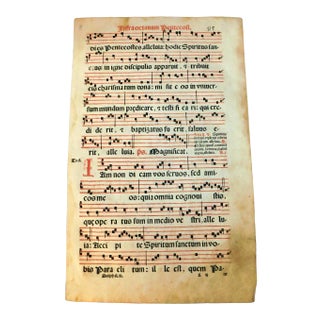 Infra octauam Pentecost.
dies Pentecostes alleluia: hodie Spiritus san-
ctus in igne discipulis apparuit, & tribuit
eis charismatum dona: misit eos in vniuer-
sum mundum prædicare, & testi fi cari: qui cre-
di de rit, & baptizatus fu erit, saluus e-
rit, alle luia. Ps. Magnificat.
IAm non di cam vos seruos, sed ami-
cos meos: quia omnia cognoui stis,
quę ope ra tus sum in medio ve stri, alle lu-
ia: Acci pi te Spiritum sanctum in vo-
bis Para cli tum: il le est, quem Pa-